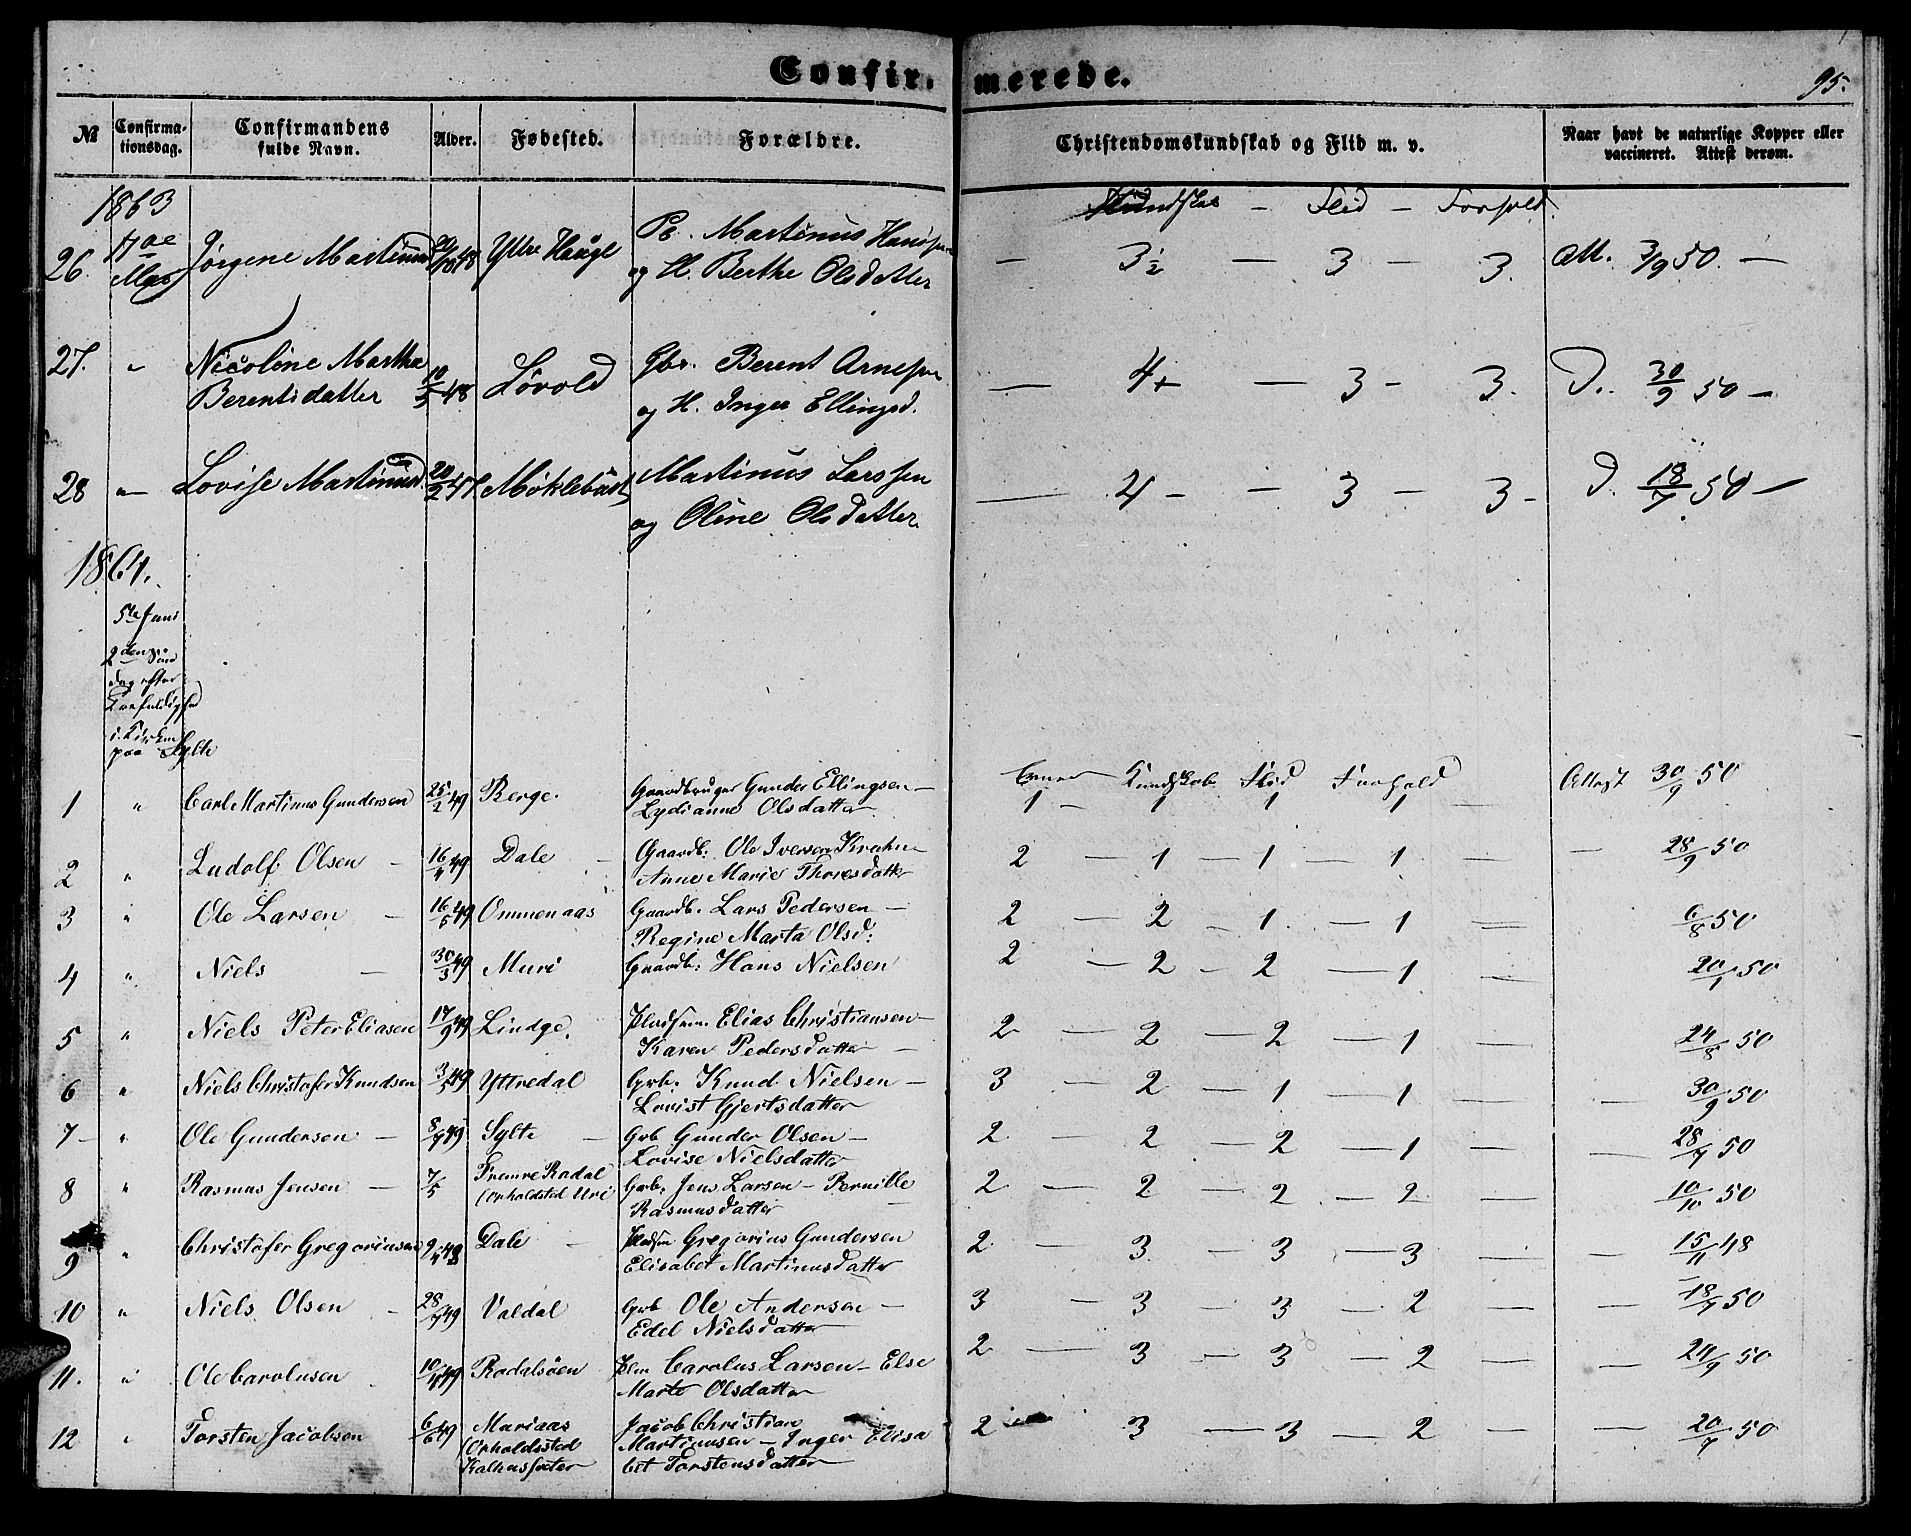 Confir- merede.
95.
№ Confirma- Confirmandens Alder. Fødested. Forældre. Christendomskundskab og Flid m. v. Naar havt de naturlige Kopper eller
tionsdag. fulde Navn. vaccineret. Attest derom.
1863 Kundskab — Flid — Forhold.
26. Maj Jørgene Martinusd Ytre Hauge
og H. Berthe Olsdatter — 3½ — 3 — 3. M. 3/9 50. —
27. " Nicoline Martha Løvold Gbr. Berent Arnesen
Berentsdatter 10/5 48 og H. Inger Ellingsd. — 4+ — 3 — 3. D. 30/9 50 —
28 " Lovise Martinusd. 20/2 47 Møklebust Martinus Larssen
og Oline Olsdatter. — 4 — — 3 — 3 — D. 18/7 50 —
1864.
5te Juni
2den Søn
dag efter
Trefoldighed
i Kirken
paa Sylte
Evner Kundskab Flid Forhold Attest 30/9 50
1 " Carl Martinus Gundersen 25/2 49 Berge. Gaardbruger Gunder Ellingsen — 1 — 1 1 1 —
Lydianne Olsdatter
2 " Ludolf Olsen — 16/4 49 Dale — Gaardb: Ole Iversen Krohn — 2 — 1 — 1 — 1 — — 28/9 50
Anne Marie Thoresdatter
3 " Ole Larsen — 16/5 49 Ommenaas Gaardb. Lars Pedersen — 2 — 2 — 1 — 1 — 6/8 50
Regine Marta Olsd:
4 " Niels — 30/3 49 Muri Gaardb: Hans Nielsen 2 — 2 — 2 — 1 — 20/1 50
5 " Niels Peter Eliasen 17/9 49 Lindge. Pladsm. Elias Christiansen — 2 — 2 — 2 — 1 — 24/8 50
Karen Pedersdatter —
6 " Niels Christofer Knudsen 3/5 49 Yttredal Grb. Knud Nielsen — 3 — 2 — 1 — 1 — — 30/9 50
Lovise Gjertsdatter
7 — " Ole Gundersen — 8/9 49 Sylte — Grb Gunder Olsen — 2 — 2 — 2 — 1 — — 28/7 50
Lovise Nielsdatter
8 " Rasmus Jensen — 7/5 Fremre Rødal Grb. Jens Larsen — Pernille 2 — 2 — 2 — 2 — 10/10 50
(Opholdsted Uri Rasmusdatter
9 " Christofer Gregoriusen 9/4 48 Dale — Pladsm Gregorius Gundersen 2 — 3 — 3 — 3 — — 15/11 48
Elisabet Martinusdatter
10 " Niels Olsen — 28/9 49 Valdal Grb Ole Andersen — 3 — 3 — 3 — 2 — — 18/7 50
Edel Nielsdatter
11. " Ole Carolusen 10/11 49 Rødalsøen Plm Carolus Larsen — Else 2 — 3 — 3 — 2 — — 24/9 50
Marte Olsdatter
12 " Torsten Jacobsen 6/6 49 Mariaas Jacob Christian 2 3 — 3 — 2 — 20/7 50
(Opholdssted Martinusen — Inger Elisa
bet Torstensdatter